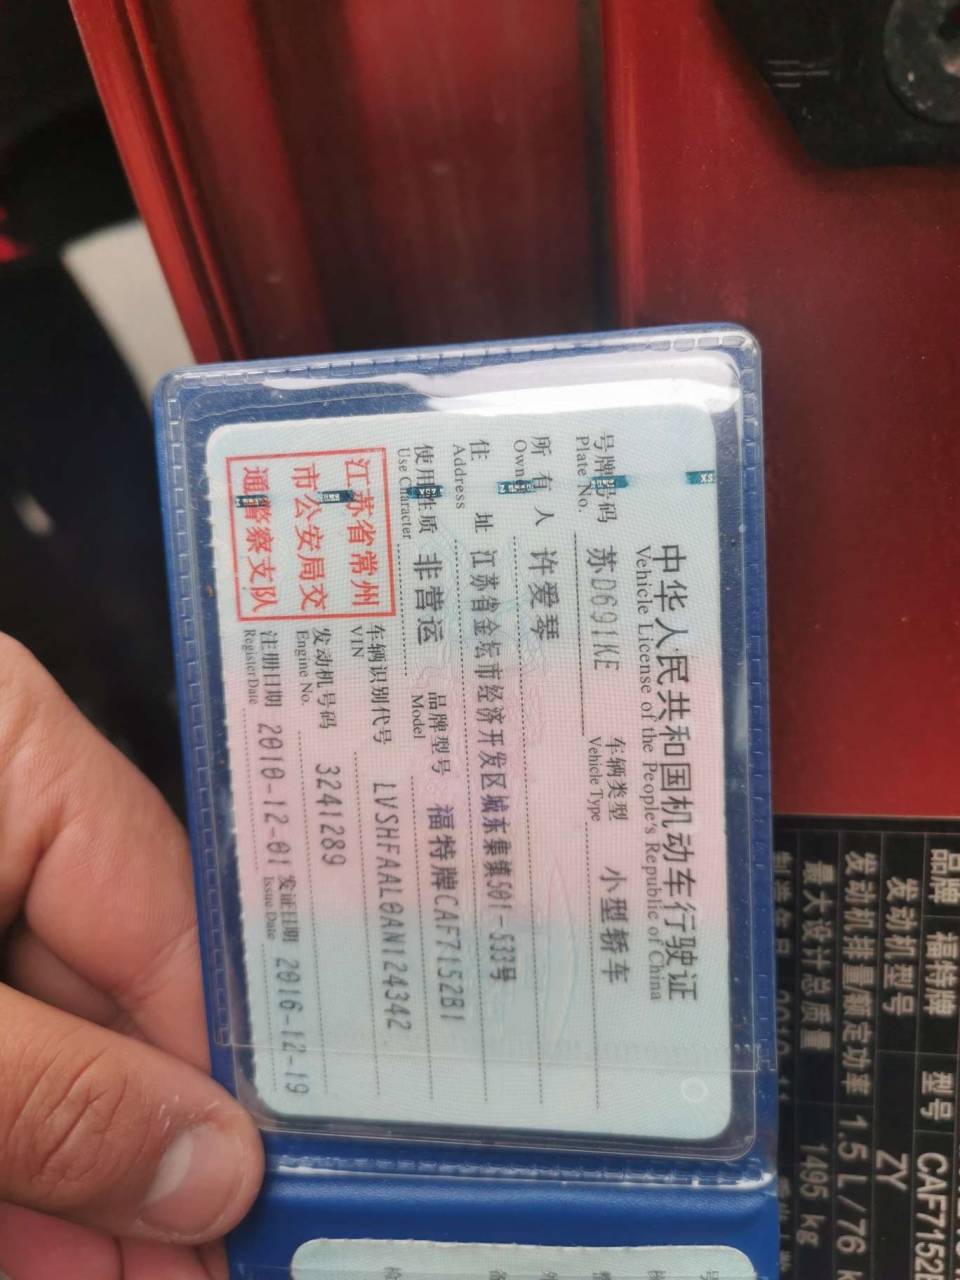 中华人民共和国机动车行驶证
Vehicle License of the People's Republic of China
号牌号码 苏D691KE 车辆类型 小型轿车
Plate No. Vehicle Type
所有人 许爱琴
Owner
住址 江苏省金坛市经济开发区城东集镇501-533号
Address
使用性质 非营运 品牌型号 福特牌CAF7152B1
Use Character Model
江苏省常州
市公安局交
通警察支队
车辆识别代号 LVSHFAAL0AN124342
VIN
发动机号码 3241289
Engine No.
注册日期 2010-12-01 发证日期 2016-12-19
Register Date Issue Date
品牌 福特牌 型号 CAF7152
发动机型号 ZY
发动机排量/额定功率 1.5 L/76
最大设计总质量 1495 kg